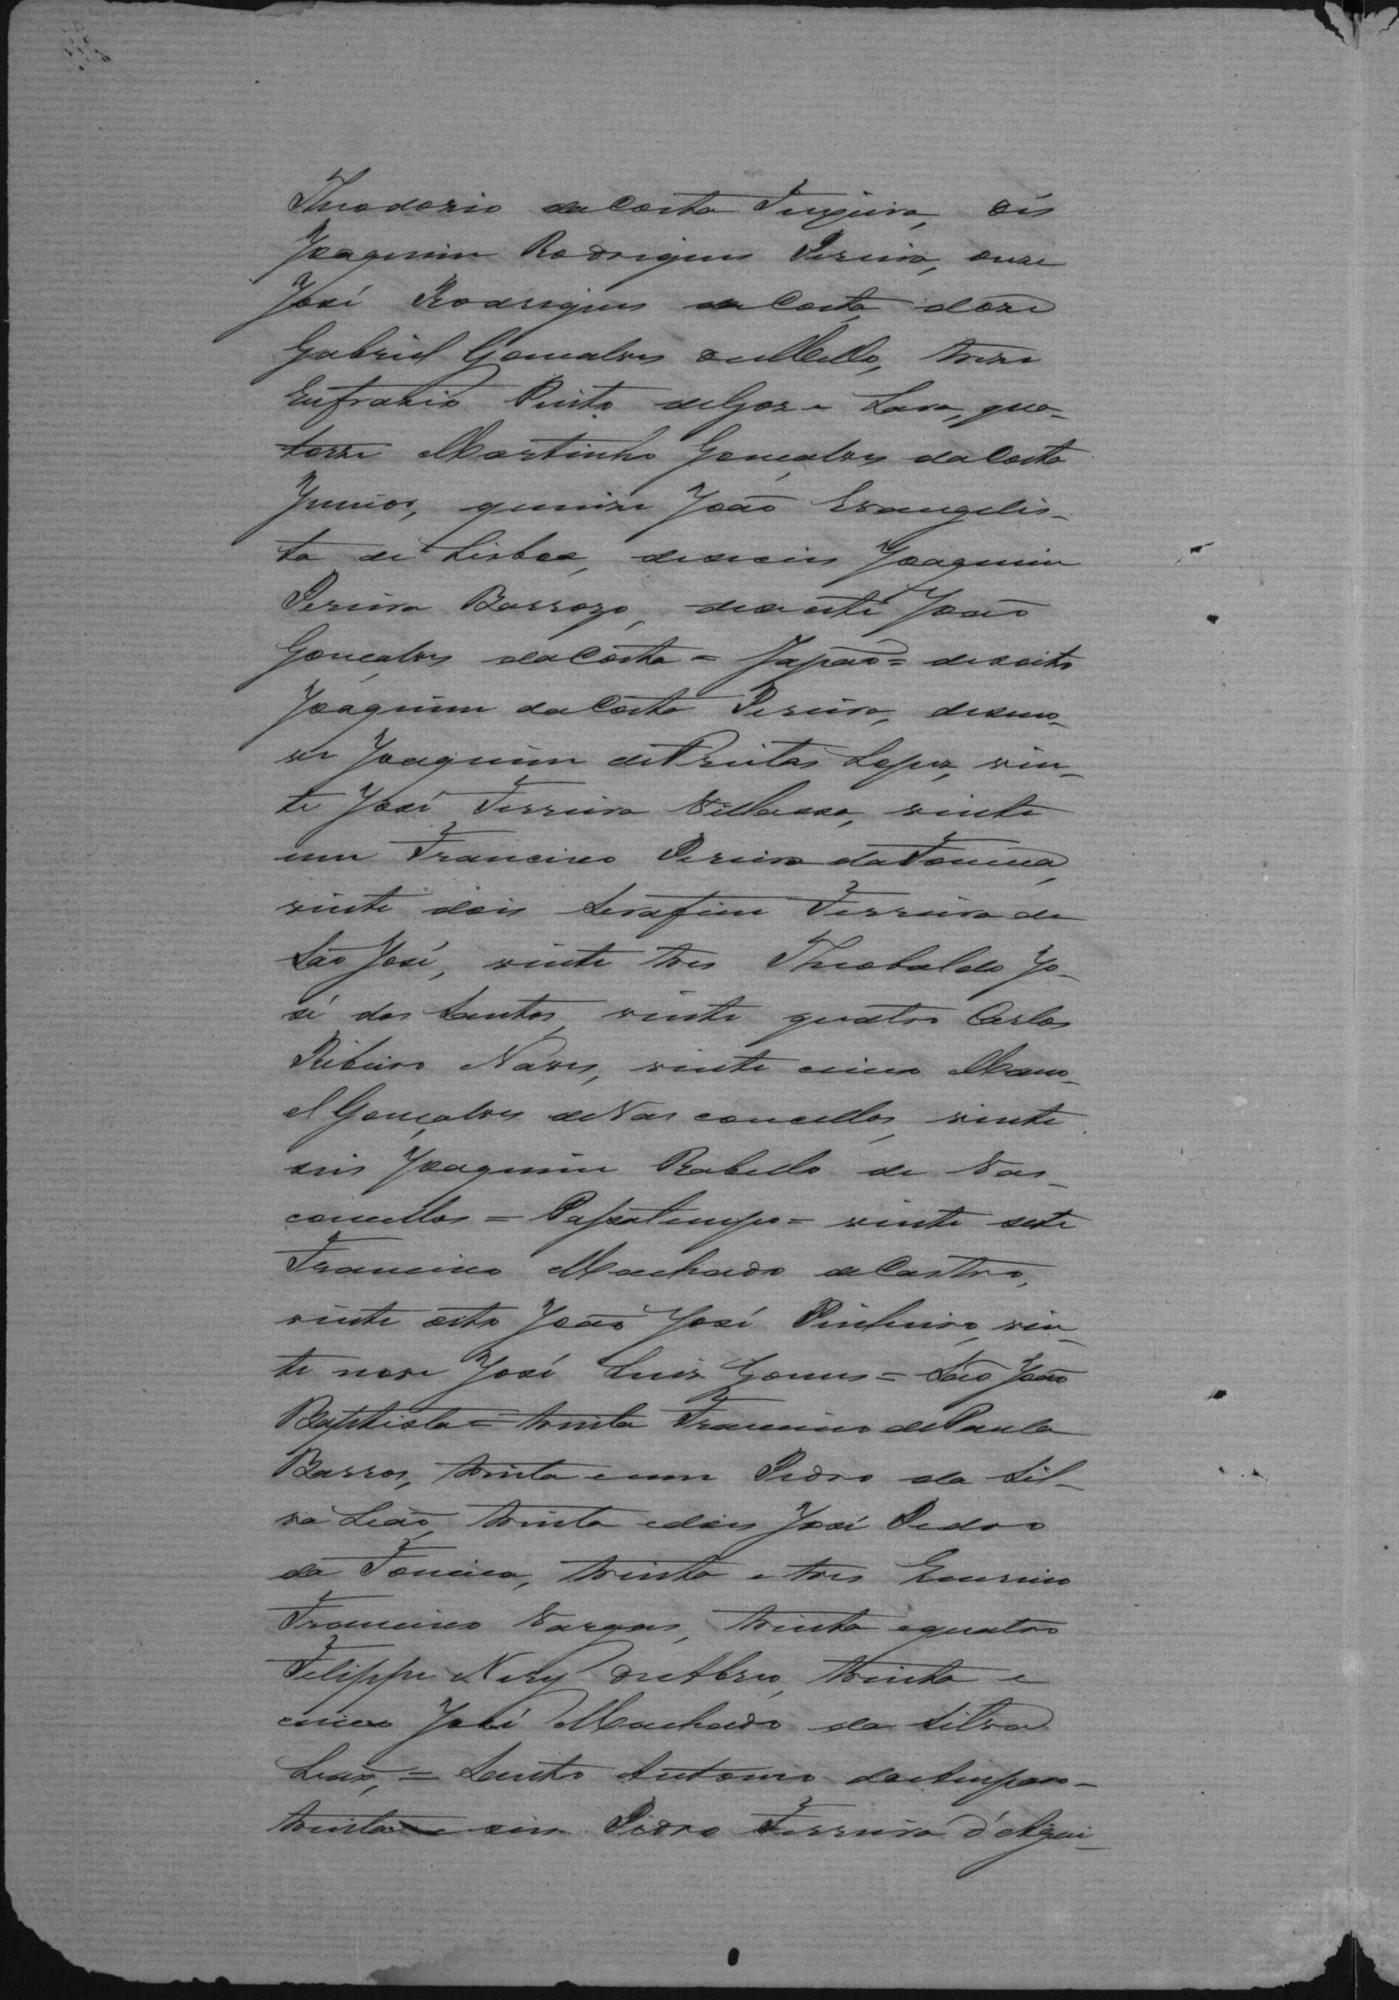 Theodorio da Costa Teixeira, dés
Joaquim Rodrigues Pereira, onze
José Rodrigues da Costa, doze
Gabriel Gonçalves de Mello, treze
Eufrasio Pinto de Goz e Lara, qua-
torze Martinho Gonçalves da Costa
Junior, quinze João Evangelis-
ta de Lisboa, deseseis Joaquim
Pereira Barrozo, desesete João
Gonçalves da Costa = Japão = desoito
Joaquim da Costa Pereira, deseno-
ve Joaquim de Freitas Lopes, vin-
te José Ferreira Villassa, vinte
um Francisco Pereira da Fonseca,
vinte dois Serafim Ferreira de
São José, vinte tres Theobaldo Jo-
sé dos Santos, vinte quatro Carlos
Ribeiro Naves, vinte cinco Mano-
el Gonçalves de Vasconcellos, vinte
seis Joaquim Rabello de Vas-
concellos = Passatempo = vinte sete
Francisco Machado de Castro,
vinte oito João José Pinheiro, vin-
te nove José Luis Gomes = São João
Baptista = trinta Francisco de Paula
Barros, trinta e um Pedro da Sil-
va Leão, trinta e dois José Pedro
da Fonseca, trinta e tres Emerico
Francisco Vargas, trinta e quatro
Filippe Nery de Abreu, trinta e
cinco José Machado da Silva
Leão, = Santo Antonio do Amparo =
trinta e seis Pedro Ferreira d'Agui-